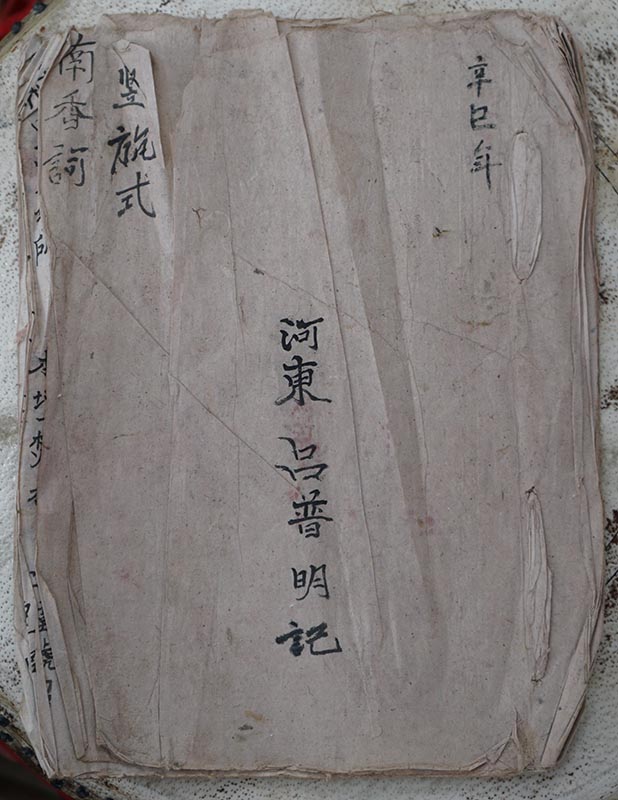 辛巳年
河東 呂普明記
豎旐式
南香詞